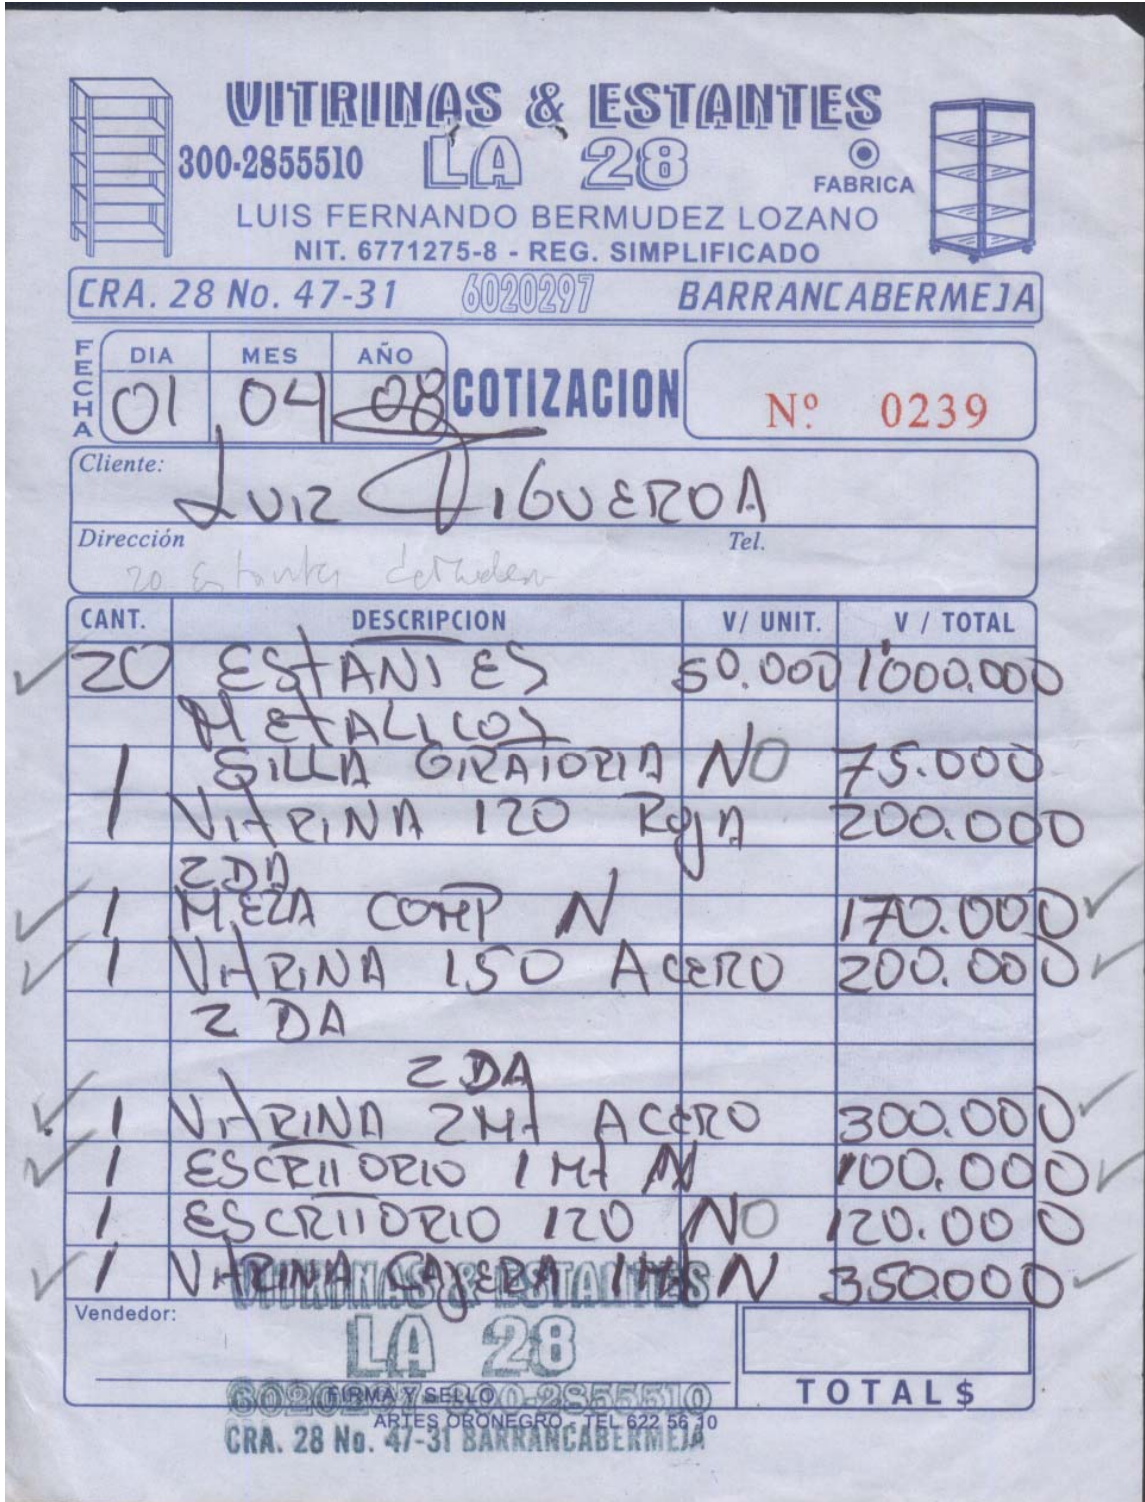 VITRINAS & ESTANTES
300-2855510 LA 28
FABRICA
LUIS FERNANDO BERMUDEZ LOZANO
NIT. 6771275-8 - REG. SIMPLIFICADO
CRA. 28 No. 47-31 6020297 BARRANCABERMEJA
FECHA DIA MES AÑO
01 04 08 COTIZACION Nº 0239
Cliente:
LUIZ FIGUEROA
Dirección Tel.
20 Estantes
CANT. DESCRIPCION V/ UNIT. V / TOTAL
20 ESTANTES 50.000 1'000.000
METALICOS
1 SILLA GIRATORIA NO 75.000
1 VITRINA 120 ROJA 200.000
2DA
1 MEZA COMP N 170.000
1 VITRINA 150 ACERO 200.000
2 DA
2 DA
1 VITRINA 2Mt ACERO 300.000
1 ESCRITORIO 1 Mt N 100.000
1 ESCRITORIO 120 NO 120.000
1 VITRINA CAJERA 1Mt N 350000
Vendedor:
VITRINAS & ESTANTES
LA 28
FIRMA Y SELLO
6020297-300-2855510
TOTAL $
ARTES ORONEGRO - TEL 622 56 10
CRA. 28 No. 47-31 BARRANCABERMEJA